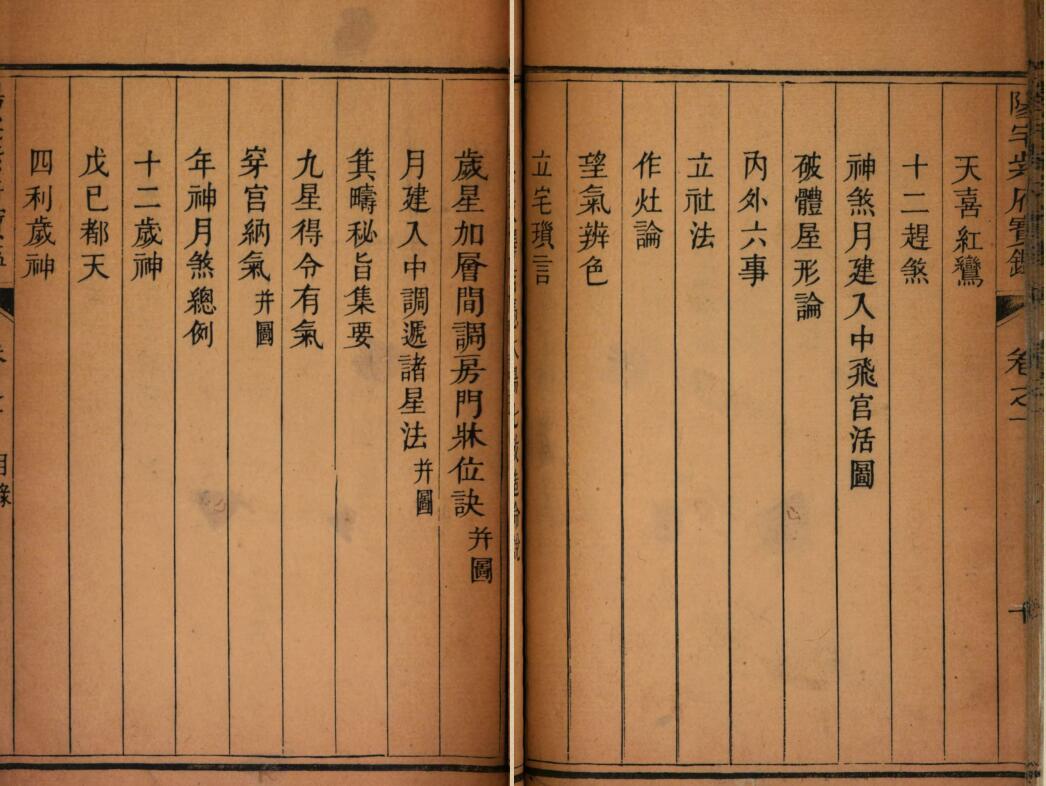 卷之一
十
天喜紅鸞
十二趕煞
神煞月建入中飛宮活圖
破體屋形論
內外六事
立社法
作灶論
望氣辨色
立宅瑣言
歲星加層間調房門牀位訣 并圖
月建入中調遞諸星法 并圖
箕疇秘旨集要
九星得令有氣
穿宮納氣 并圖
年神月煞總例
十二歲神
戊己都天
四利歲神
目錄